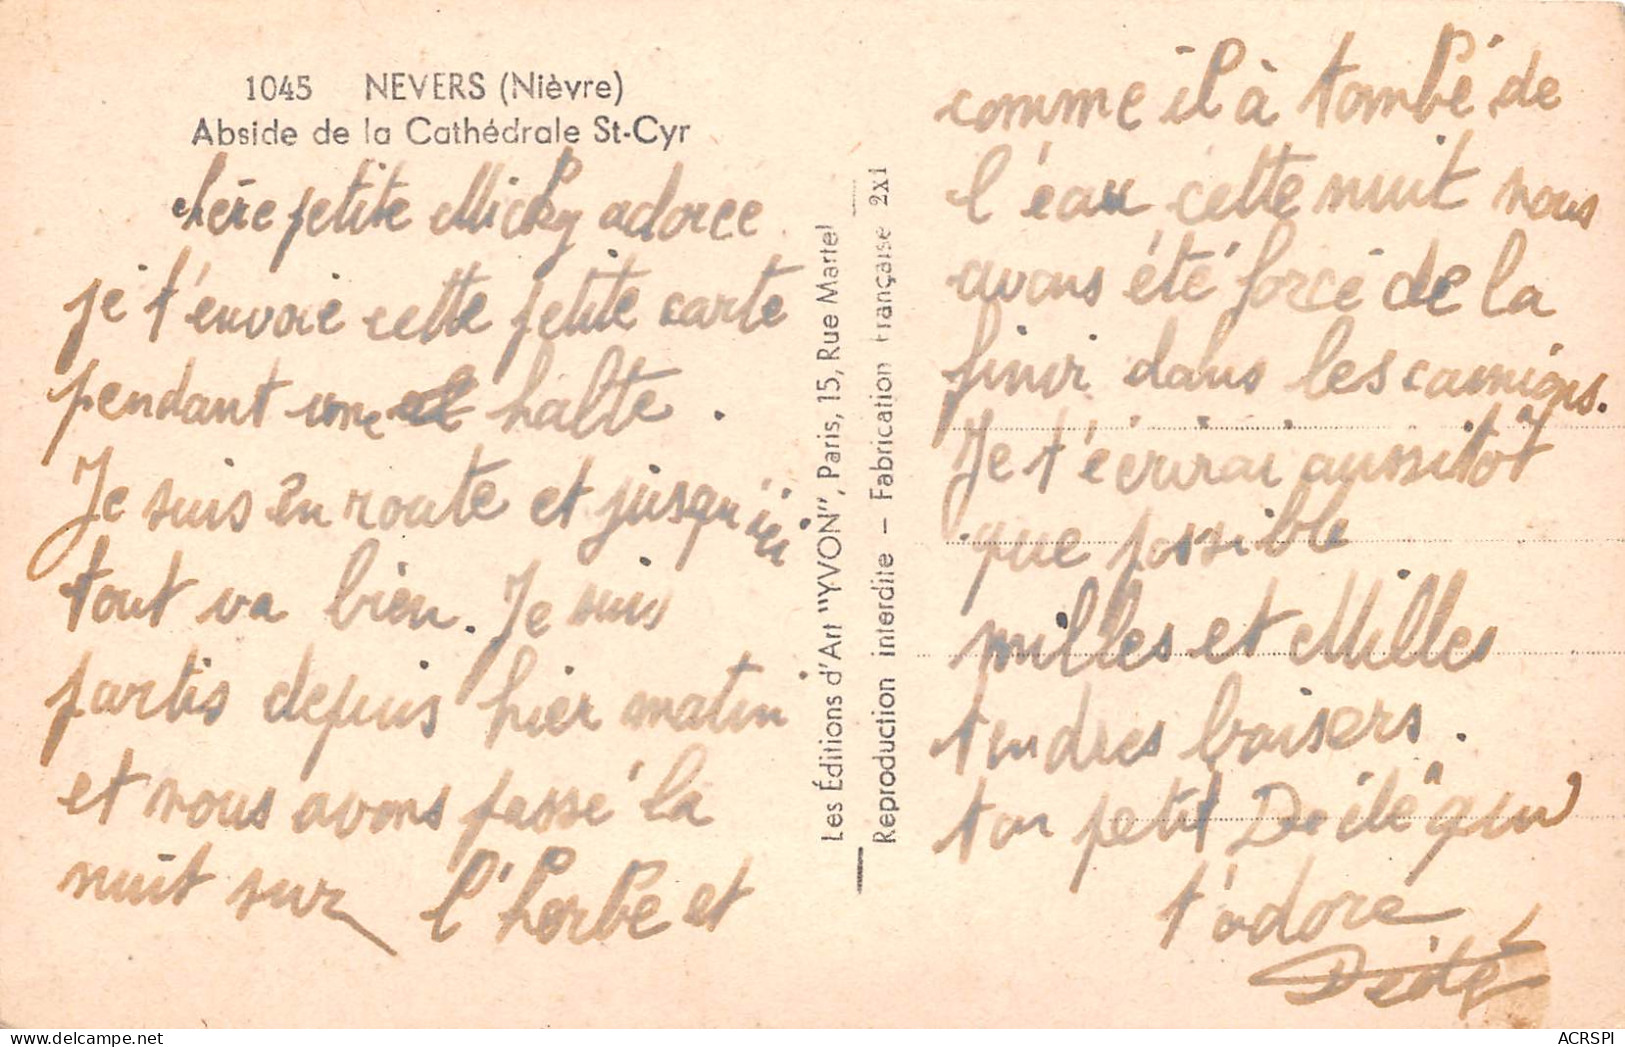 1045 NEVERS (Nièvre)
Abside de la Cathédrale St-Cyr
chère petite Micky adorée
je t'envoie cette petite carte
pendant une halte.
Je suis en route et jusqu'ici
tout va bien. Je suis
partis depuis hier matin
et nous avons passé la
nuit sur l'herbe et
Les Éditions d'Art "YVON", Paris, 15, Rue Martel
Reproduction interdite — Fabrication Française 2x1
comme il à tombé de
l'eau cette nuit nous
avons été forcé de la
finir dans les camions.
Je t'écrirai aussitôt
que possible
milles et Milles
tendres baisers.
ton petit Dédé qui
t'adore
Dédé
ACRSPI